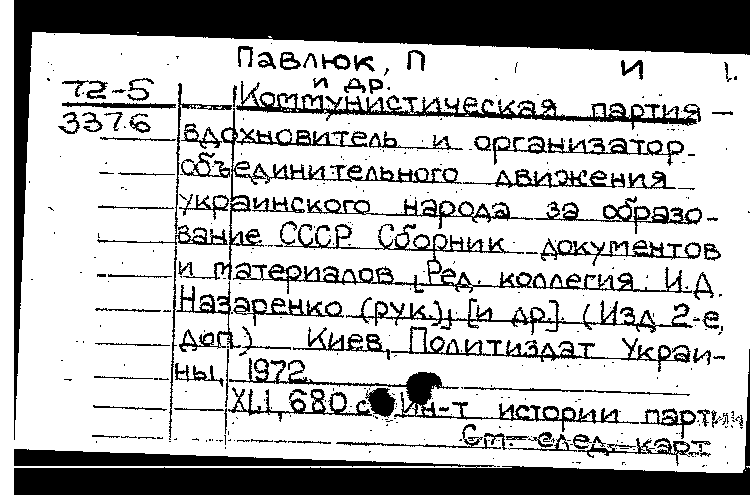 Павлюк, П И 1.
и др.
72-5 Коммунистическая партия —
3376 вдохновитель и организатор
объединительного движения
украинского народа за образо-
вание СССР Сборник документов
и материалов [Ред. коллегия: И.Д.
Назаренко (рук.)] [и др.]. (Изд 2-е,
доп.) Киев, Политиздат Украи-
ны, 1972.
XLI, 680 с Ин-т истории партии
См. след. карт